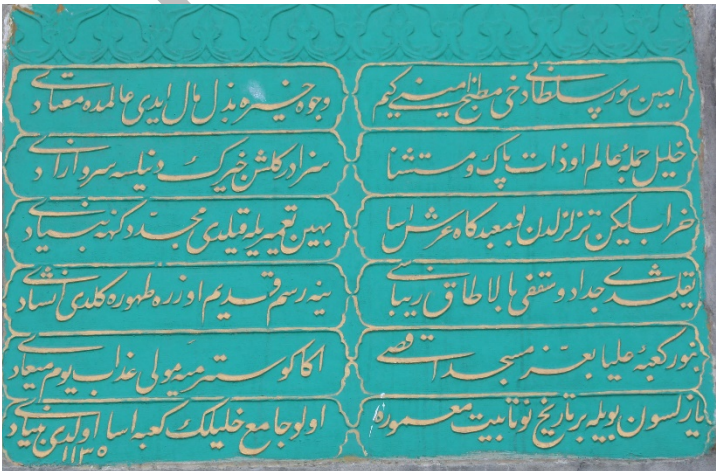 امین سور سلطانی دخی مطبخ امینی کیم وجوه خیره بذل مال ایدی عالمده معتادی
خلیل جمله عالم اوذات پاك و مستثنا سزادر کلشن خیرك دنیلسه سرو آزادی
خراب ایکن تزلزلدن بو معبدکاه عرش آسا بهین تعمیریله قیلدی مجدد کهنه بنیادی
یقلمشدی جدار و سقفی بالا طاق زیباسی ینه رسم قدیم اوزره ظهوره کلدی انشادی
بنور کعبهٔ علیا بعز مسجد اقصی اکا کوسترمیه مولی عذاب یوم میعادی
یازلسون بویله بر تاریخ نو تا بیت معموره اولو جامع خلیلك کعبه آسا اولدی بنیادی
۱۱۳۵